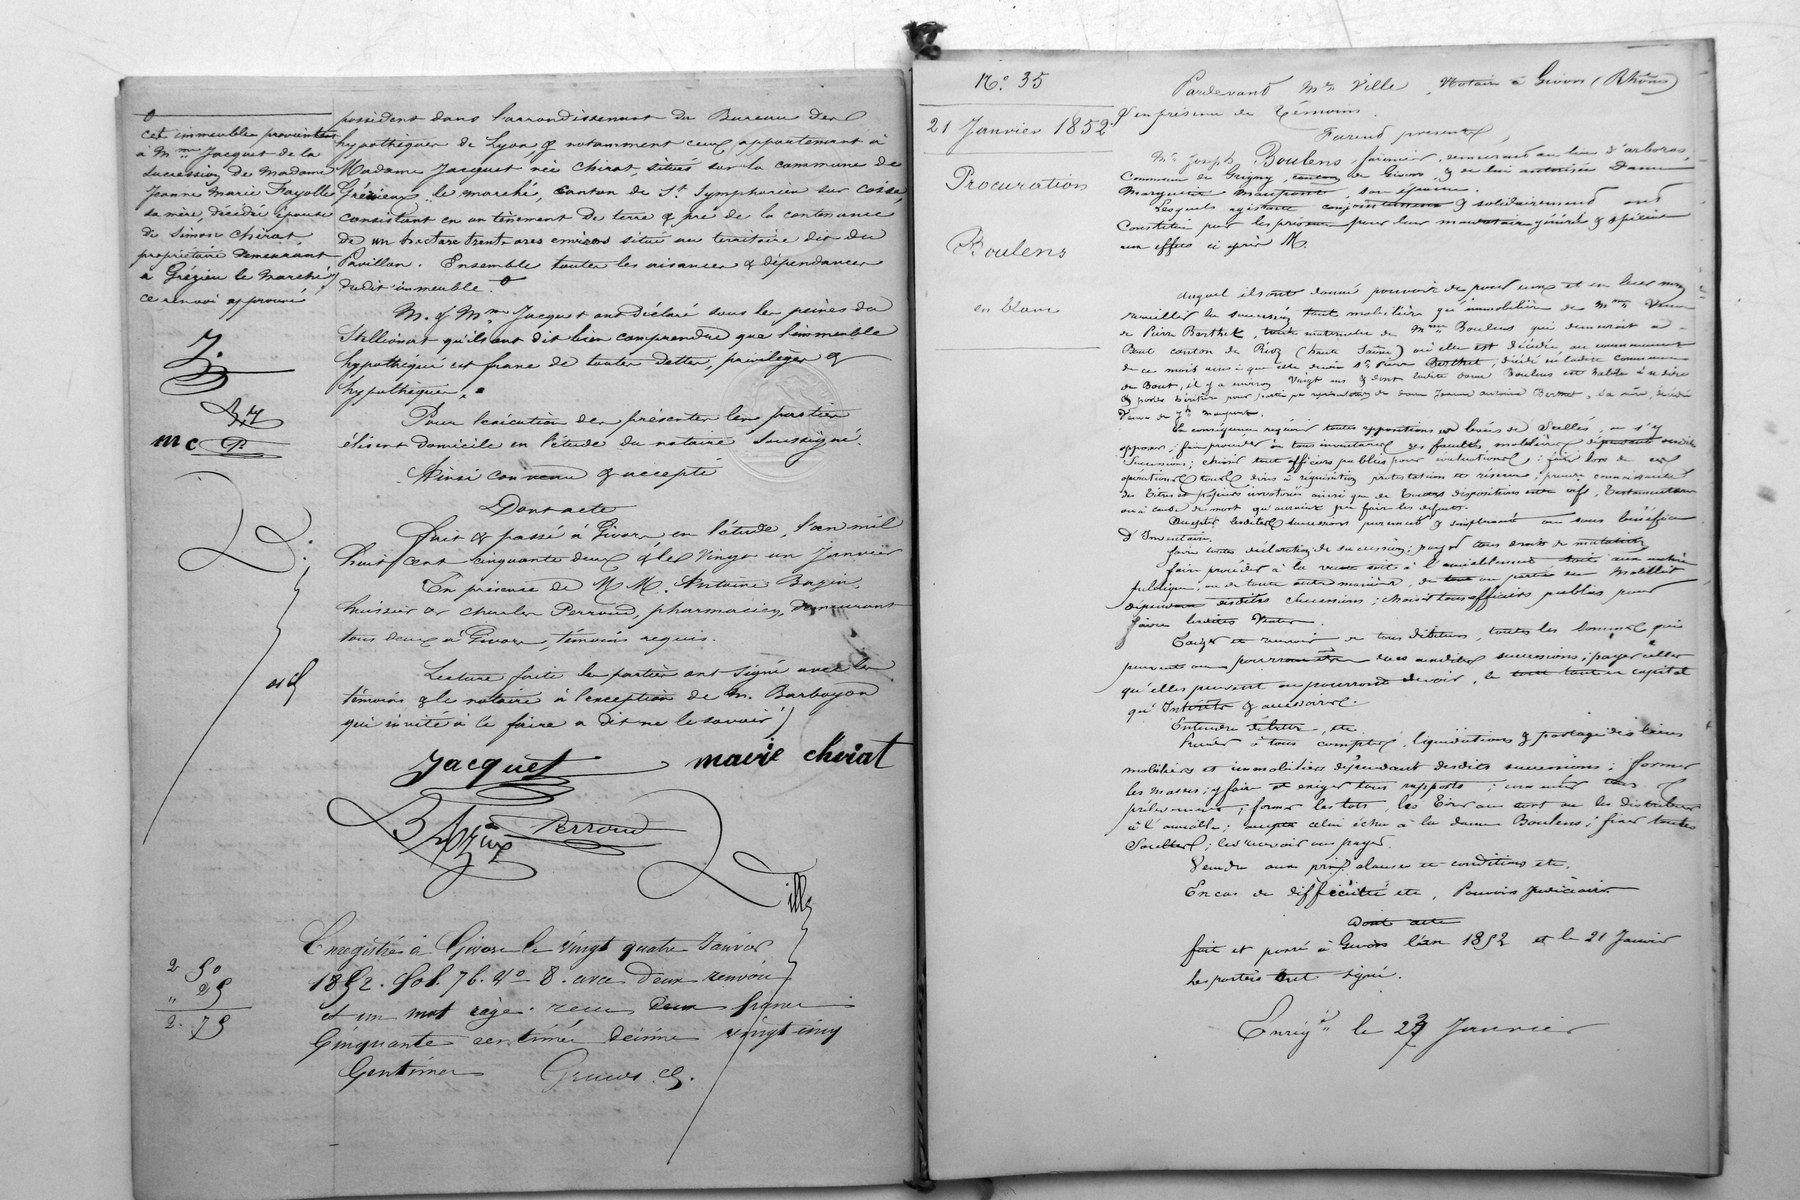 cet immeuble provenant
à Mme Jacquet de la
succession de Madame
Jeanne Marie Fayolle
sa mère, décédée épouse
de Simon Chirat,
propriétaire demeurant
à Grézieu le Marché
ce renvoi approuvé
J.
B Z
mc P
possèdent dans l'arrondissement du Bureau des
hypothèques de Lyon, & notamment ceux appartenant à
Madame Jacquet née Chirat, situés sur la commune de
Grézieux le marché, canton de St Symphorien sur Coise,
consistant en un tènement de terre & pré de la contenance
de un hectare trente ares environ situé au territoire dit du
Pavillon. Ensemble toutes les aisances & dépendances
dudit immeuble.
M. & Mme Jacquet ont déclaré sous les peines du
Stellionat qu'ils ont dit bien comprendre que l'immeuble
hypothéqué est franc de toutes dettes, privilèges &
hypothèques.
Pour l'exécution des présentes les parties
élisent domicile en l'étude du notaire soussigné.
Ainsi convenu & accepté
Dont acte
Fait & passé à Givors en l'étude, l'an mil
huit cent cinquante deux & le vingt un Janvier
En présence de M M. Antoine Bazin,
huissier & Charles Perroud, pharmacien, demeurant
tous deux à Givors, témoins requis.
Lecture faite les parties ont signé avec les
témoins & le notaire à l'exception de M. Barboyon
qui invité à le faire a dit ne le savoir
Jacquet marie chirat
Bazin Perroud
Ville
Enregistré à Givors le vingt quatre Janvier
1852. fol. 76. Vo 8. avec deux renvois
et un mot rayé. reçu deux francs
Cinquante centimes décime vingt cinq
Centimes
2 50
25
2. 75
No. 35
21 Janvier 1852
Procuration
Boulens
en blanc
Pardevant Me Ville, Notaire à Givors (Rhône)
& en présence de Témoins.
Furent présents,
Mr Joseph Boulens, fermier, demeurant au lieu d'arboras,
Commune de Grigny, canton de Givors, & de lui autorisée Dame
Marguerite Maupront, son épouse.
Lesquels agissant conjointement & solidairement ont
Constitué par les présentes pour leur mandataire général & spécial
aux effets ci après M.
Auquel ils ont donné pouvoir de pour eux et en leur nom
recueillir la succession tant mobilière qu'immobilière de Mme Veuve
de Pierre Berthet, tante maternelle de Mme Boulens qui demeurait à
Bout canton de Rioz (haute Saône) où elle est décédée au commencement
de ce mois ainsi que celle de Pierre Berthet, décédé en ladite commune
de Bout, il y a environ vingt ans & dont ladite dame Boulens est habile à se dire
En conséquence requérir toutes appositions ou levées de Scellés, ou s'y
opposer; faire procéder à tous inventaires des facultés mobilières dépendant desdites
Successions; choisir tous officiers publics pour
D'Inventaire.
Faire toutes déclarations de succession; payer tous droits de mutation
Faire procéder à la vente soit à l'amiable soit aux enchères
publiques, ou de toute autre manière, de tout ou partie du Mobilier
dépendant desdites Successions; choisir tous officiers publics pour
faire lesdites Ventes.
Exiger et recevoir de tous débiteurs, toutes les sommes qui
peuvent ou pourront être dues auxdites successions; payer celles
qu'elles peuvent ou pourront devoir, le tout tant en capital
qu'Intérêts & accessoires.
Entendre débattre, etc
Procéder à tous comptes, liquidations & partage des biens
mobiliers et immobiliers dépendant desdites successions; former
les masses; y faire et exiger tous rapports; consentir tous
prélèvements; former les lots, les tirer au sort ou les distribuer
à l'amiable; accepter celui échu à la dame Boulens; fixer toutes
Soultes; les recevoir ou payer.
Vendre aux prix clauses et conditions etc.
En cas de difficulté etc, Pouvoirs judiciaires
Dont acte
fait et passé à Givors l'an 1852 et le 21 Janvier
Les parties ont signé.
Enrgé le 23 Janvier